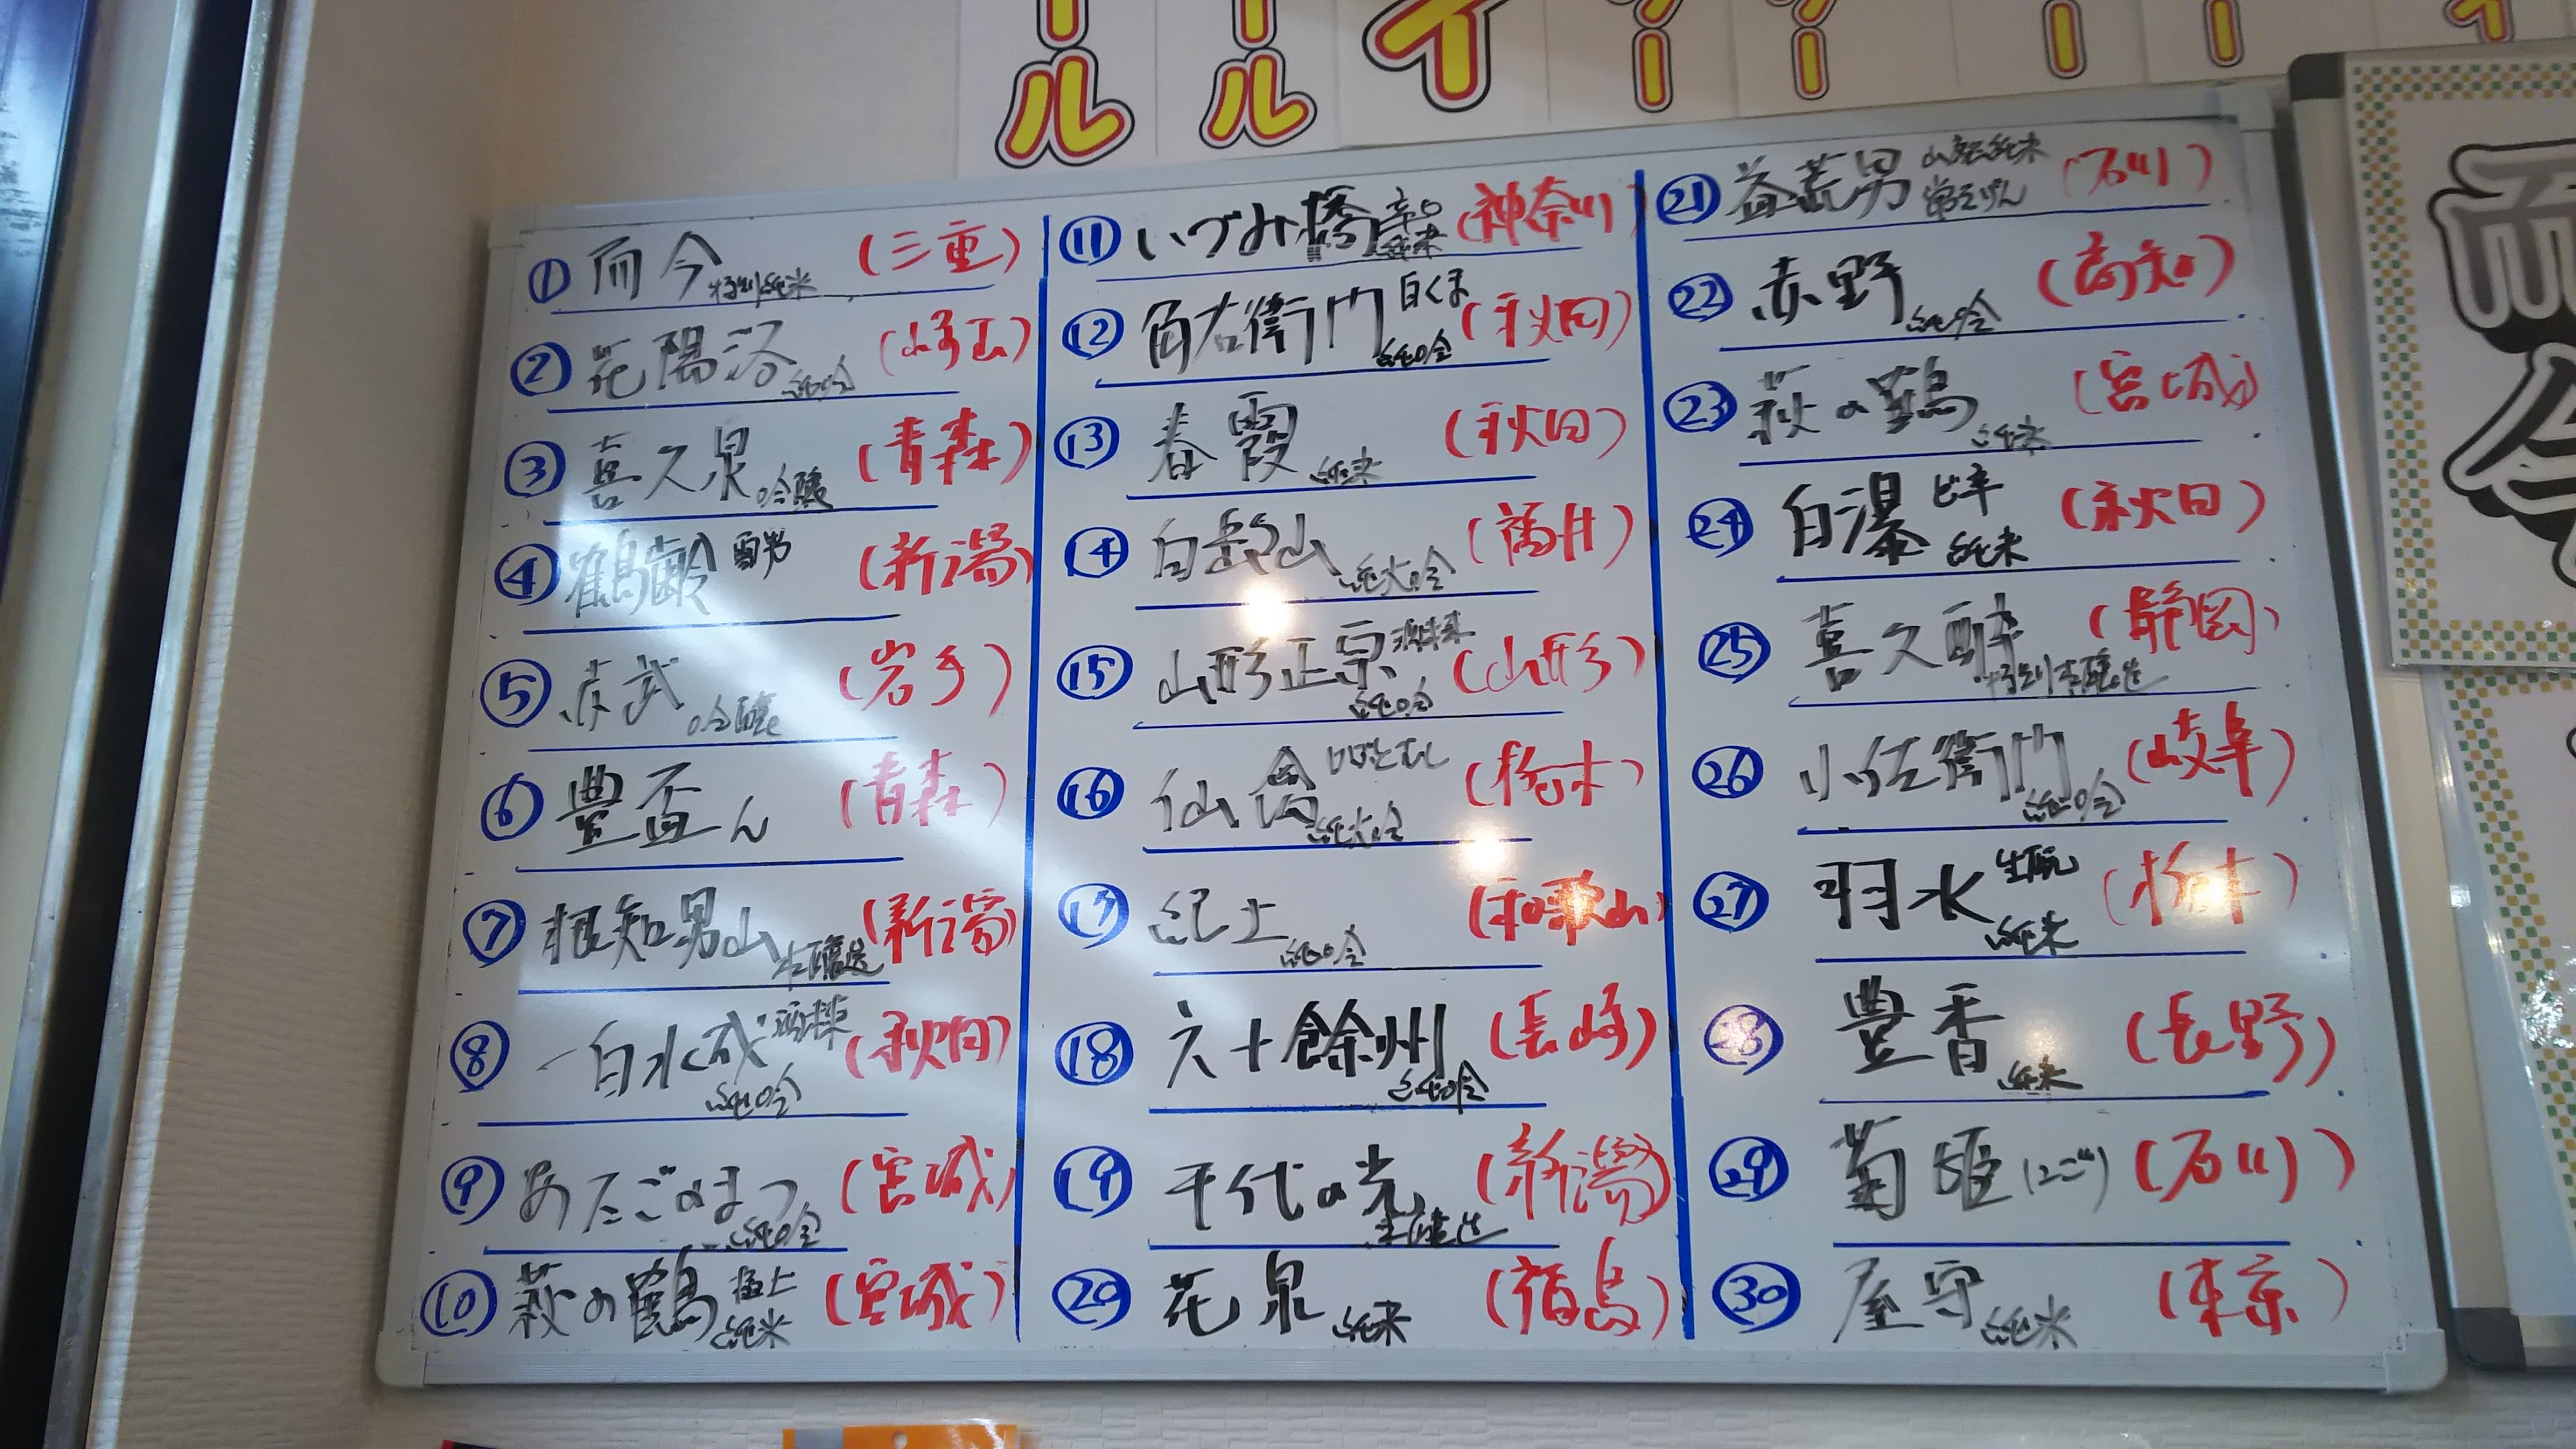 ール
ール
イ
ー
ー
ー
ー
① 而今 特別純米 (三重)
② 花陽浴 純吟 (埼玉)
③ 喜久泉 吟醸 (青森)
④ 鶴齢 (新潟)
⑤ 赤武 吟醸 (岩手)
⑥ 豊盃ん (青森)
⑦ 根知男山 本醸造 (新潟)
⑧ 一白水成 純吟 (秋田)
⑨ あたごのまつ 純吟 (宮城)
⑩ 萩の鶴 極上 純米 (宮城)
⑪ いづみ橋 辛口 純米 (神奈川)
⑫ 角右衛門 白くま 純吟 (秋田)
⑬ 春霞 純米 (秋田)
⑭ 白岳仙 純大吟 (福井)
⑮ 山形正宗 純吟 (山形)
⑯ 仙禽 純大吟 (栃木)
⑰ 紀土 純吟 (和歌山)
⑱ 六十餘州 純吟 (長崎)
⑲ 千代の光 本醸造 (新潟)
⑳ 花泉 純米 (福島)
㉑ 益荒男 山廃純米 (石川)
㉒ 赤野 純吟 (高知)
㉓ 萩の鶴 純米 (宮城)
㉔ 白瀑 ど辛 純米 (秋田)
㉕ 喜久醉 特別本醸造 (静岡)
㉖ 小左衛門 純吟 (岐阜)
㉗ 羽水 生酛 純米 (栃木)
㉘ 豊香 純米 (長野)
㉙ 菊姫 (にごり) (石川)
㉚ 屋守 純米 (東京)
而今